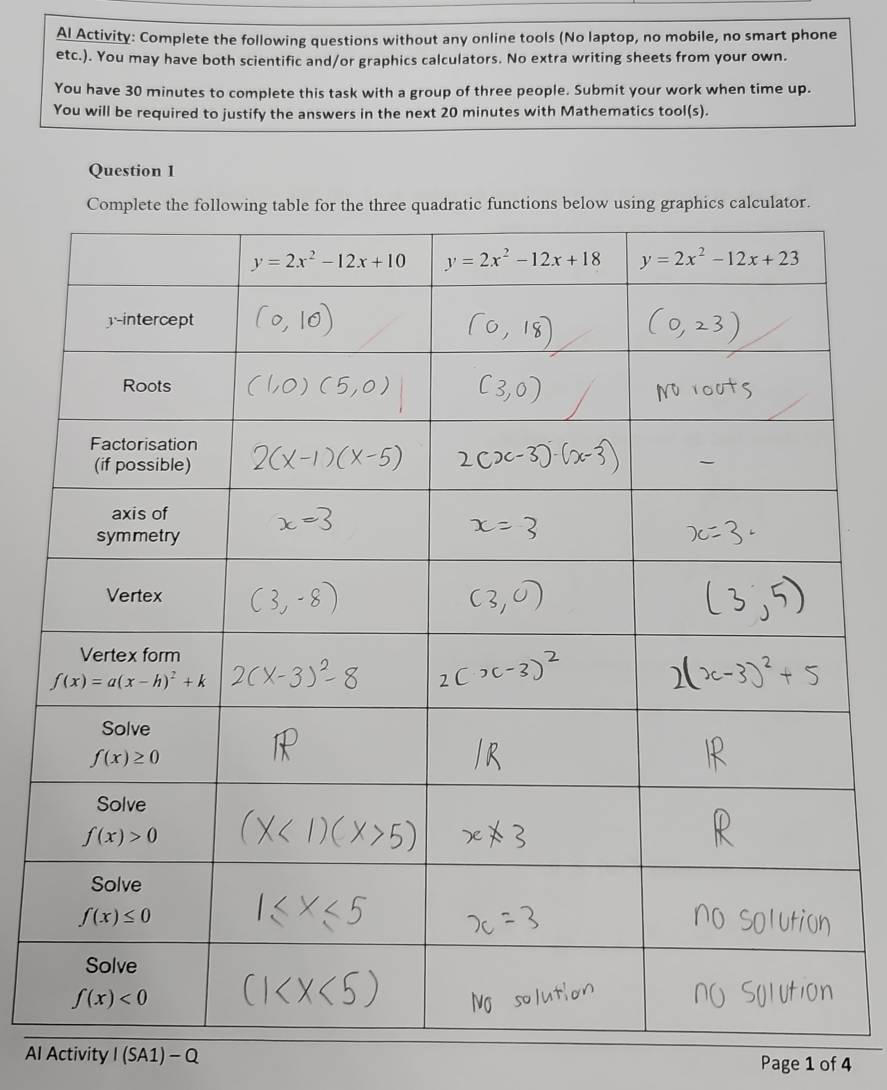 AI Activity: Complete the following questions without any online tools (No laptop, no mobile, no smart phone
etc.). You may have both scientific and/or graphics calculators. No extra writing sheets from your own.
You have 30 minutes to complete this task with a group of three people. Submit your work when time up.
You will be required to justify the answers in the next 20 minutes with Mathematics tool(s).
Question 1
Complete the following table for the three quadratic functions below using graphics calculator.
y = 2x² − 12x + 10 y = 2x² − 12x + 18 y = 2x² − 12x + 23
y-intercept (0, 10) (0, 18) (0, 23)
Roots (1,0) (5,0) (3,0) No roots
Factorisation
(if possible) 2(x-1)(x-5) 2(x-3)·(x-3) —
axis of
symmetry x=3 x=3 x=3.
Vertex (3,-8) (3,0) (3,5)
Vertex form
f(x) = a(x − h)² + k 2(x-3)²-8 2(x-3)² 2(x-3)²+5
Solve
f(x) ≥ 0 ℝ ℝ ℝ
Solve
f(x) > 0 (x<1)(x>5) x≠3 ℝ
Solve
f(x) ≤ 0 1≤x≤5 x=3 no solution
Solve
f(x) < 0 (1<x<5) No solution no solution
AI Activity I (SA1) – Q
Page 1 of 4